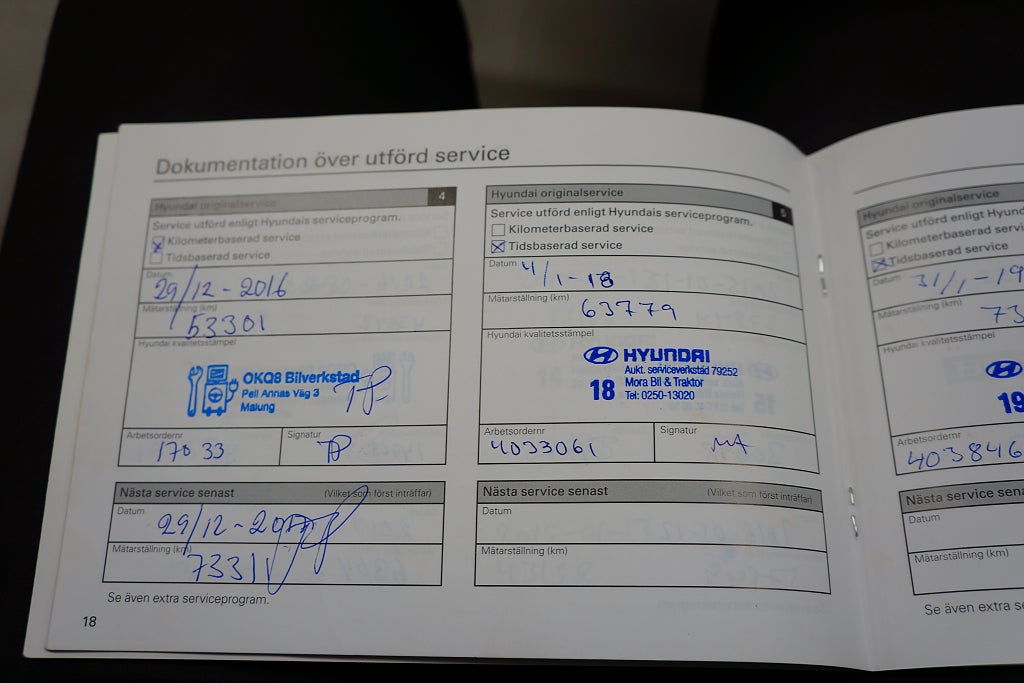 Dokumentation över utförd service
Hyundai originalservice 4
Service utförd enligt Hyundais serviceprogram.
Kilometerbaserad service
Tidsbaserad service
Datum
29/12-2016
Mätarställning (km)
53301
Hyundai kvalitetsstämpel
OKQ8 Bilverkstad
Pell Annas Väg 3
Malung
Arbetsordernr
17033
Signatur
Nästa service senast (Vilket som först inträffar)
Datum
29/12-2017
Mätarställning (km)
73311
Se även extra serviceprogram.
18
Hyundai originalservice 5
Service utförd enligt Hyundais serviceprogram.
Kilometerbaserad service
Tidsbaserad service
Datum
4/1-18
Mätarställning (km)
63779
Hyundai kvalitetsstämpel
HYUNDAI
Aukt. serviceverkstad 79252
18 Mora Bil & Traktor
Tel: 0250-13020
Arbetsordernr
4033061
Signatur
MA
Nästa service senast (Vilket som först inträffar)
Datum
Mätarställning (km)
Hyundai originalservice
Service utförd enligt Hyund
Kilometerbaserad service
Tidsbaserad service
Datum
31/1-19
Mätarställning (km)
73
Hyundai kvalitetsstämpel
19
Arbetsordernr
403846
Nästa service sena
Datum
Mätarställning (km)
Se även extra s